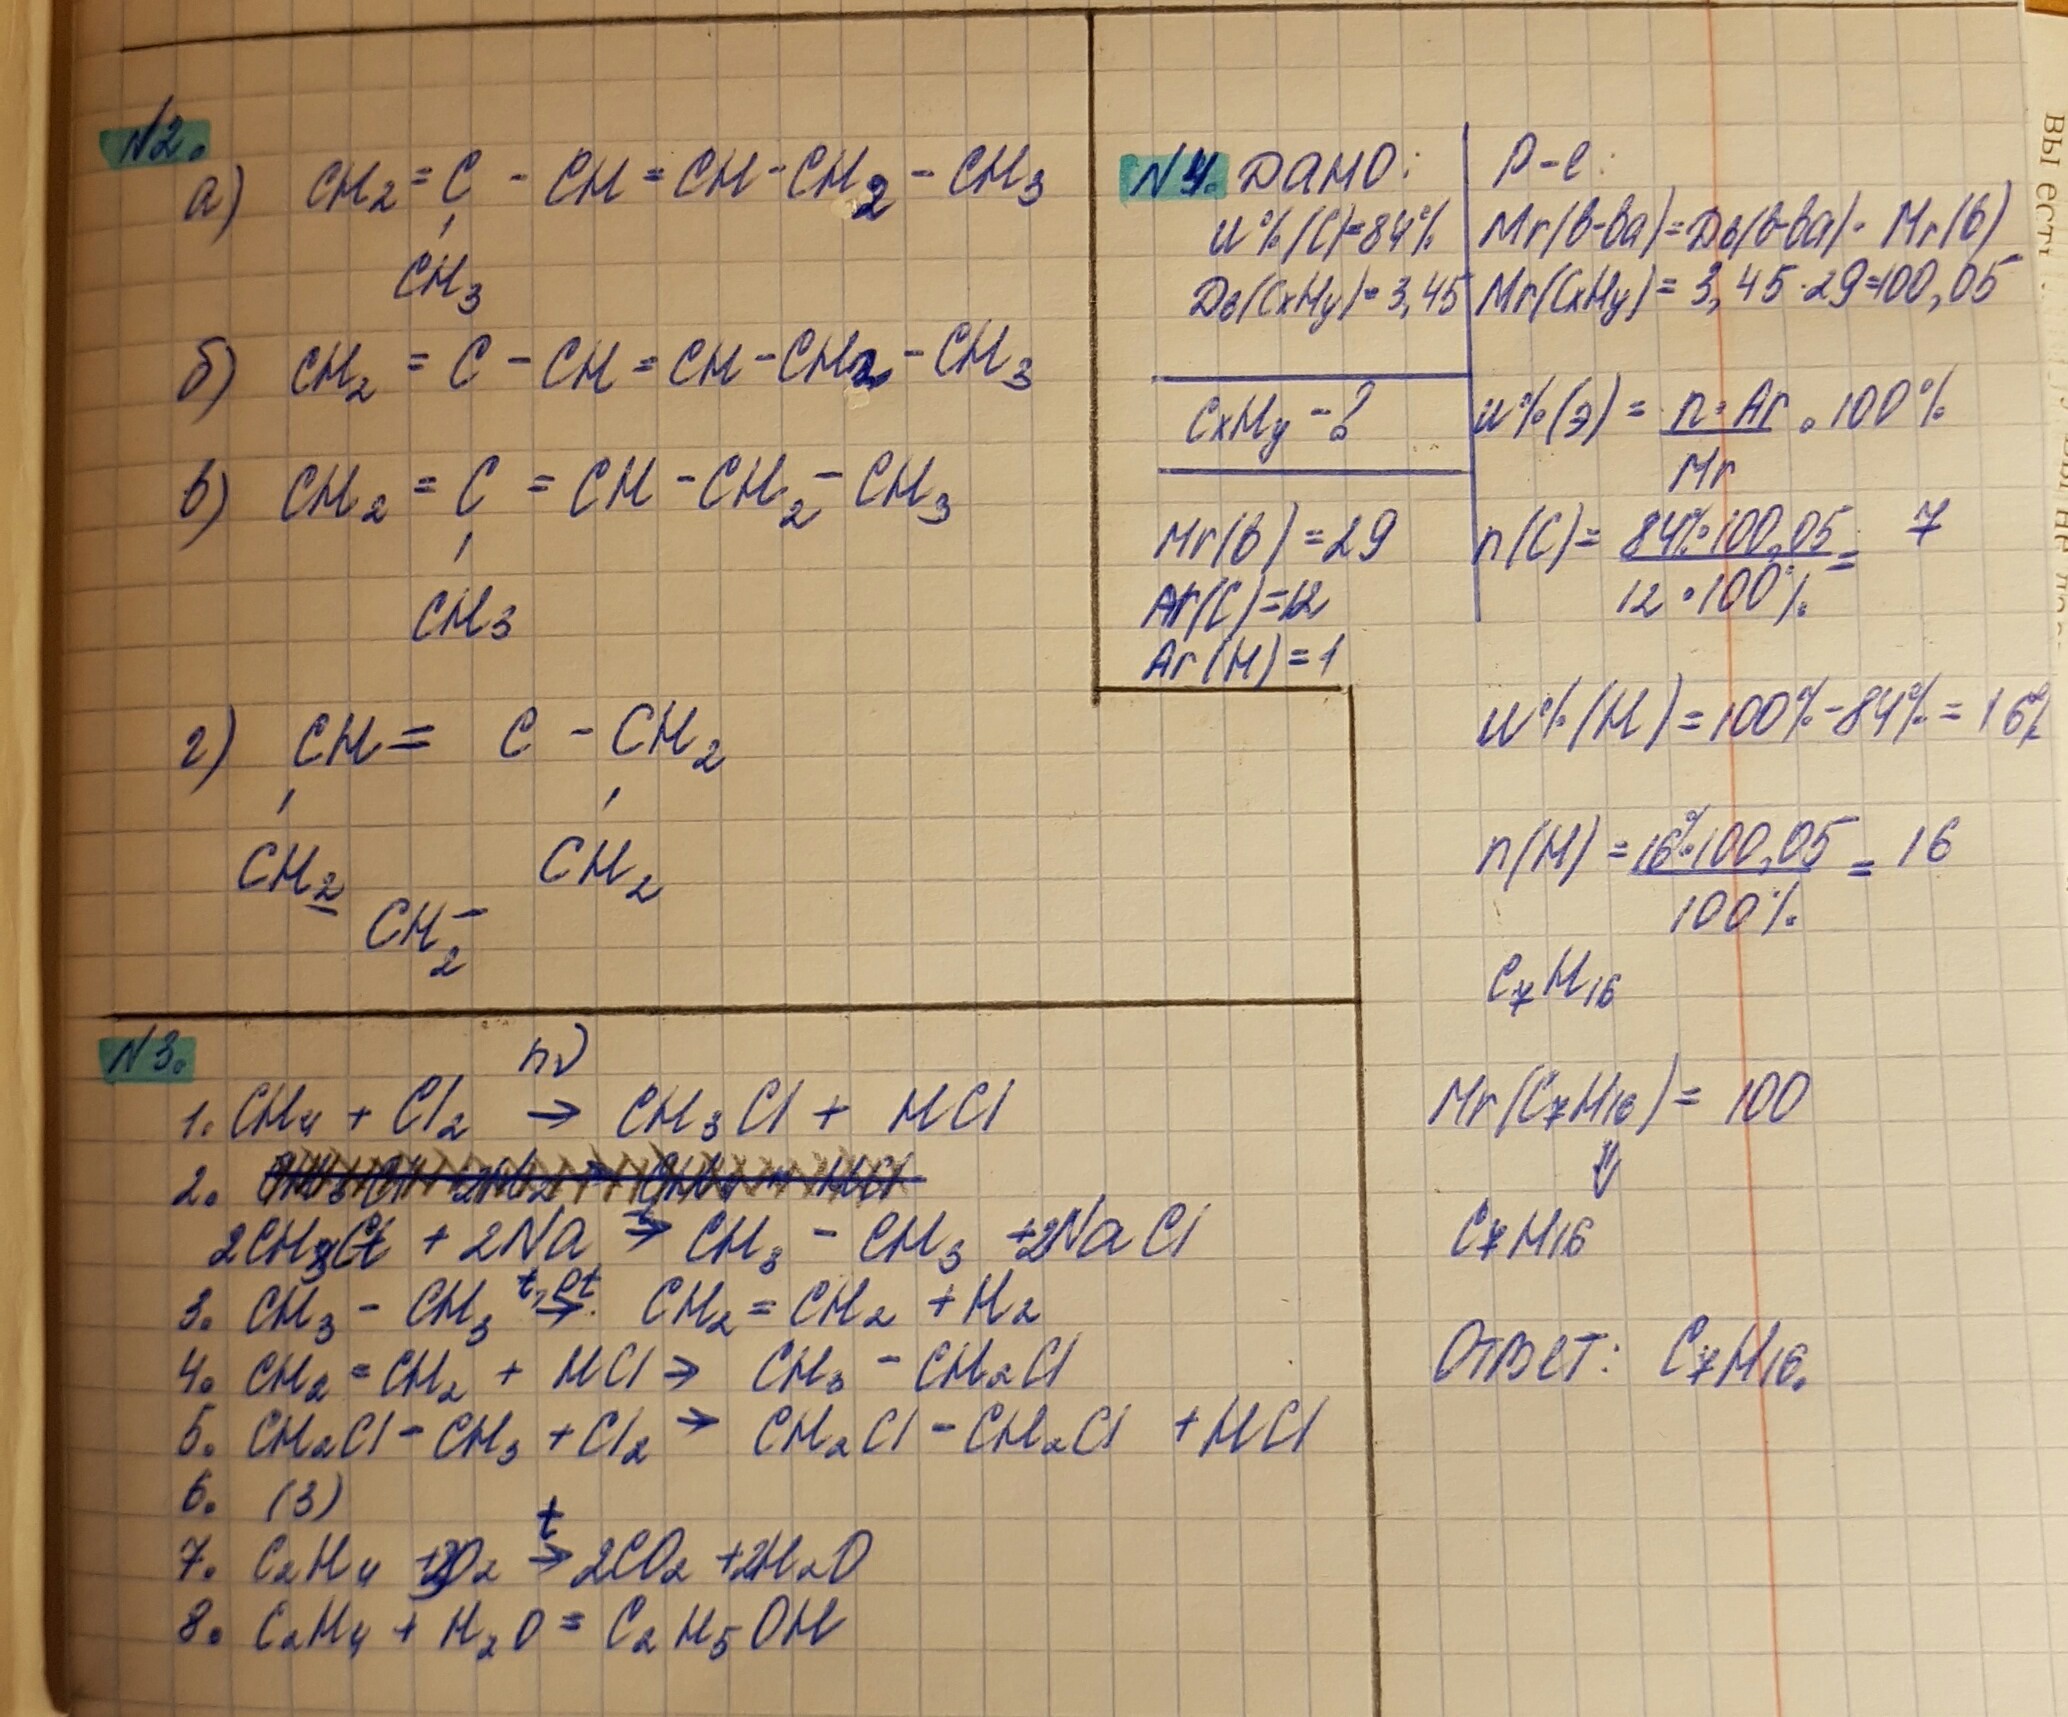 №2.
а) CH2 = C - CH = CH - CH2 - CH3
CH3
б) CH2 = C - CH = CH - CH2 - CH3
в) CH2 = C = CH - CH2 - CH3
CH3
г) CH = C - CH2
CH2 CH2
CH2
№3.
hν
1. CH4 + Cl2 → CH3Cl + HCl
2.
2CH3Cl + 2Na → CH3 - CH3 + 2NaCl
3. CH3 - CH3 t, Pt → CH2 = CH2 + H2
4. CH2 = CH2 + HCl → CH3 - CH2Cl
5. CH2Cl - CH3 + Cl2 → CH2Cl - CH2Cl + HCl
6. (3)
t
7. C2H4 + 3O2 → 2CO2 + 2H2O
8. C2H4 + H2O = C2H5OH
№4. Дано:
w%(C)=84%
Dв(CxHy)=3,45
CxHy - ?
Mr(в)=29
Ar(C)=12
Ar(H)=1
Р-е:
Mr(в-ва)=Dв(в-ва)· Mr(в)
Mr(CxHy)= 3,45·29=100,05
w%(э) = n·Ar · 100%
Mr
n(C)= 84%·100,05 = 7
12·100%
w%(H)=100%-84%=16%
n(H)=16%·100,05 = 16
100%
C7H16
Mr(C7H16)= 100
⇓
C7H16
Ответ: C7H16.
вы ест